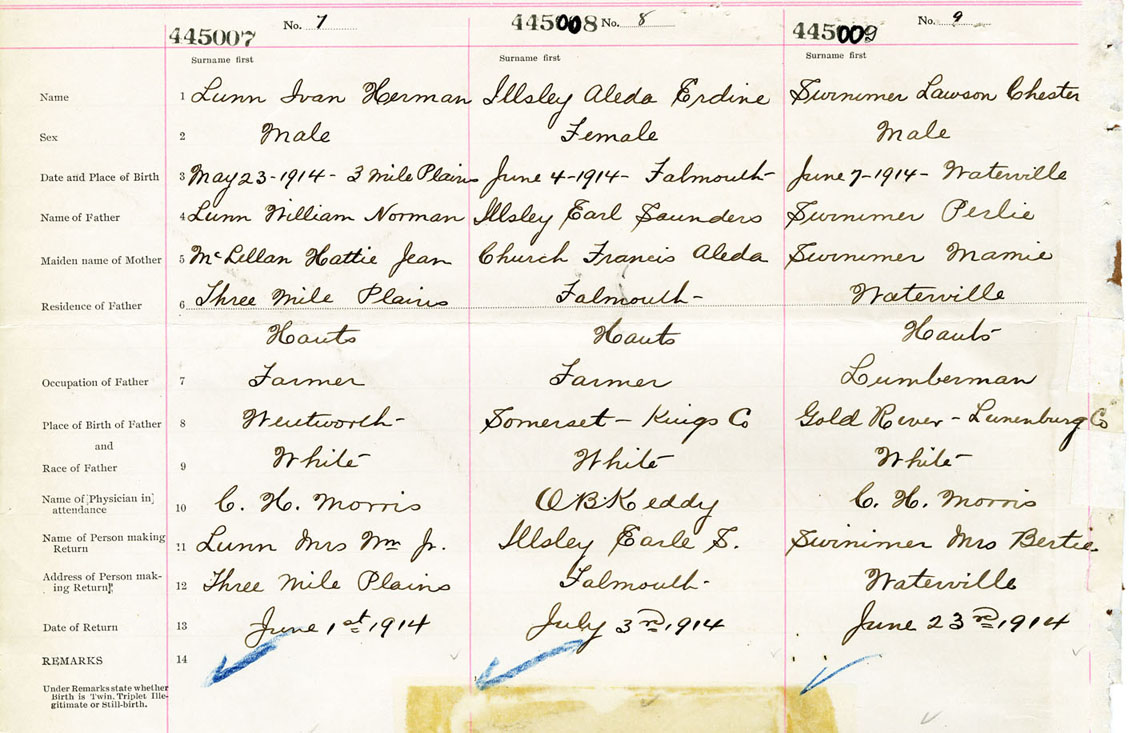 445007 No. 7 445008 No. 8 445009 No. 9
Surname first Surname first Surname first
Name 1 Lunn Ivan Herman Illsley Aleda Erdine Swinimer Lawson Chester
Sex 2 Male Female Male
Date and Place of Birth 3 May 23-1914- 3 Mile Plains June 4-1914- Falmouth- June 7-1914- Waterville
Name of Father 4 Lunn William Norman Illsley Earl Saunders Swinimer Perlie
Maiden name of Mother 5 McLellan Hattie Jean Church Francis Aleda Swinimer Mamie
Residence of Father 6 Three Mile Plains Falmouth- Waterville
Hants Hants Hants
Occupation of Father 7 Farmer Farmer Lumberman
Place of Birth of Father 8 Wentworth- Somerset- Kings Co Gold River- Lunenburg Co
and
Race of Father 9 White White White
Name of [Physician in] attendance 10 C. H. Morris O B Keddy C. H. Morris
Name of Person making Return 11 Lunn Mrs Wm Jr. Illsley Earle S. Swinimer Mrs Bertie
Address of Person mak-
ing Return 12 Three Mile Plains Falmouth- Waterville
Date of Return 13 June 1st 1914 July 3rd 1914 June 23rd 1914
REMARKS 14
Under Remarks state whether
Birth is Twin, Triplet Ille-
gitimate or Still-birth.